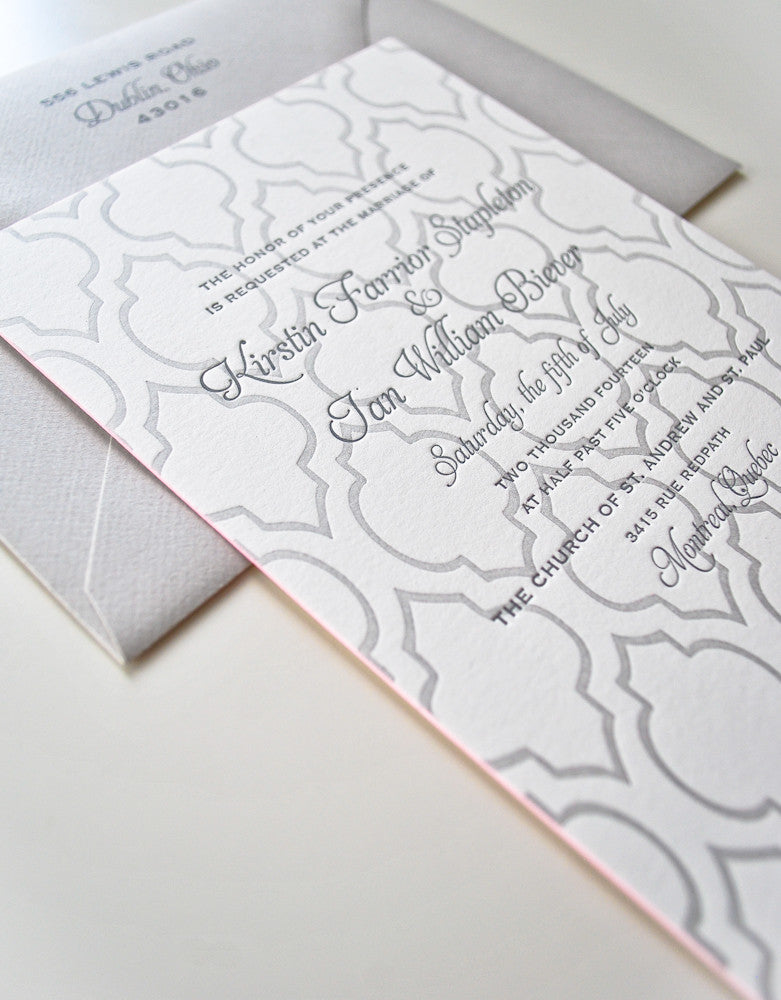 556 LEWIS ROAD
Dublin, Ohio
43016
THE HONOR OF YOUR PRESENCE
IS REQUESTED AT THE MARRIAGE OF
Kirstin Farrior Stapleton
&
Ian William Biever
Saturday, the fifth of July
TWO THOUSAND FOURTEEN
AT HALF PAST FIVE O'CLOCK
THE CHURCH OF ST. ANDREW AND ST. PAUL
3415 RUE REDPATH
Montreal, Quebec